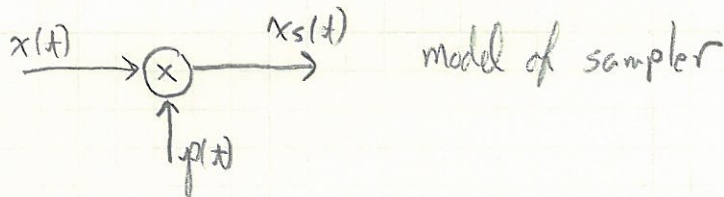 x(t)
xs(t)
model of sampler
x
p(t)